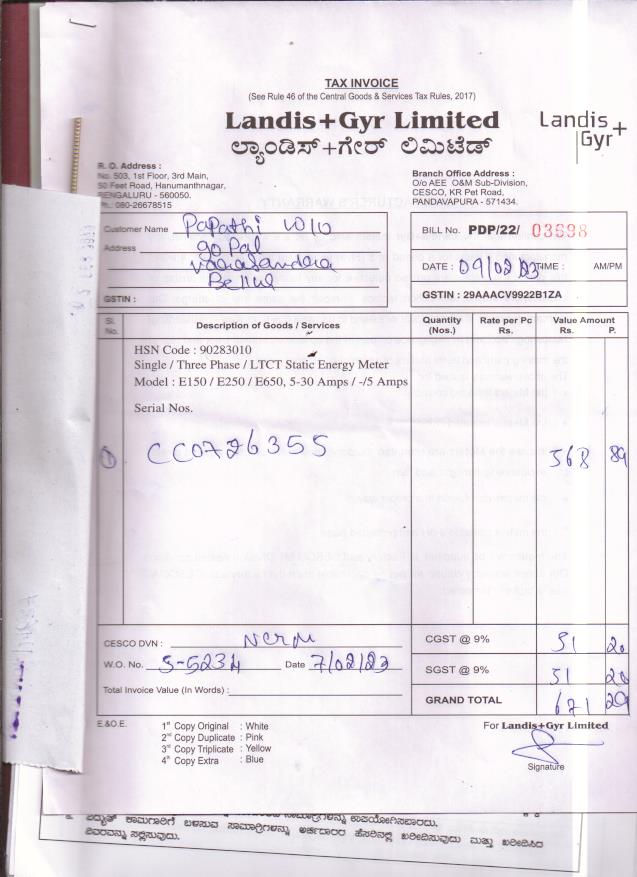 TAX INVOICE
(See Rule 46 of the Central Goods & Services Tax Rules, 2017)
Landis+Gyr Limited
ಲ್ಯಾಂಡಿಸ್+ಗೇರ್ ಲಿಮಿಟೆಡ್
Landis+
Gyr
R. O. Address :
No. 503, 1st Floor, 3rd Main,
50 Feet Road, Hanumanthnagar,
BENGALURU - 560050.
Ph.: 080-26678515
Branch Office Address :
O/o AEE O&M Sub-Division,
CESCO, KR Pet Road,
PANDAVAPURA - 571434.
Customer Name Papathi W/O
Address Gopal
Bellur
GSTIN :
BILL No. PDP/22/ 03698
DATE : 09/02/23 TIME : AM/PM
GSTIN : 29AAACV9922B1ZA
Sl. No. Description of Goods / Services Quantity (Nos.) Rate per Pc Rs. Value Amount Rs. P.
HSN Code : 90283010
Single / Three Phase / LTCT Static Energy Meter
Model : E150 / E250 / E650, 5-30 Amps / -/5 Amps
Serial Nos.
1 CC0726355 568 89
CESCO DVN :
W.O. No. S-5234 Date 7/02/23
Total Invoice Value (In Words) :
CGST @ 9% 51 20
SGST @ 9% 51 20
GRAND TOTAL 671 29
E.&O.E.
1st Copy Original : White
2nd Copy Duplicate : Pink
3rd Copy Triplicate : Yellow
4th Copy Extra : Blue
For Landis+Gyr Limited
Signature
ವಿದ್ಯುತ್ ಕಾಮಗಾರಿಗೆ ಬಳಸುವ ಸಾಮಾಗ್ರಿಗಳನ್ನು ಉಪಯೋಗಿಸಬಾರದು.
ವಿವರವನ್ನು ಸಲ್ಲಿಸುವುದು. ಸಾಮಾಗ್ರಿಗಳನ್ನು ಅರ್ಜಿದಾರರ ಹೆಸರಿನಲ್ಲಿ ಖರೀದಿಸುವುದು ಮತ್ತು ಖರೀದಿಸಿದ